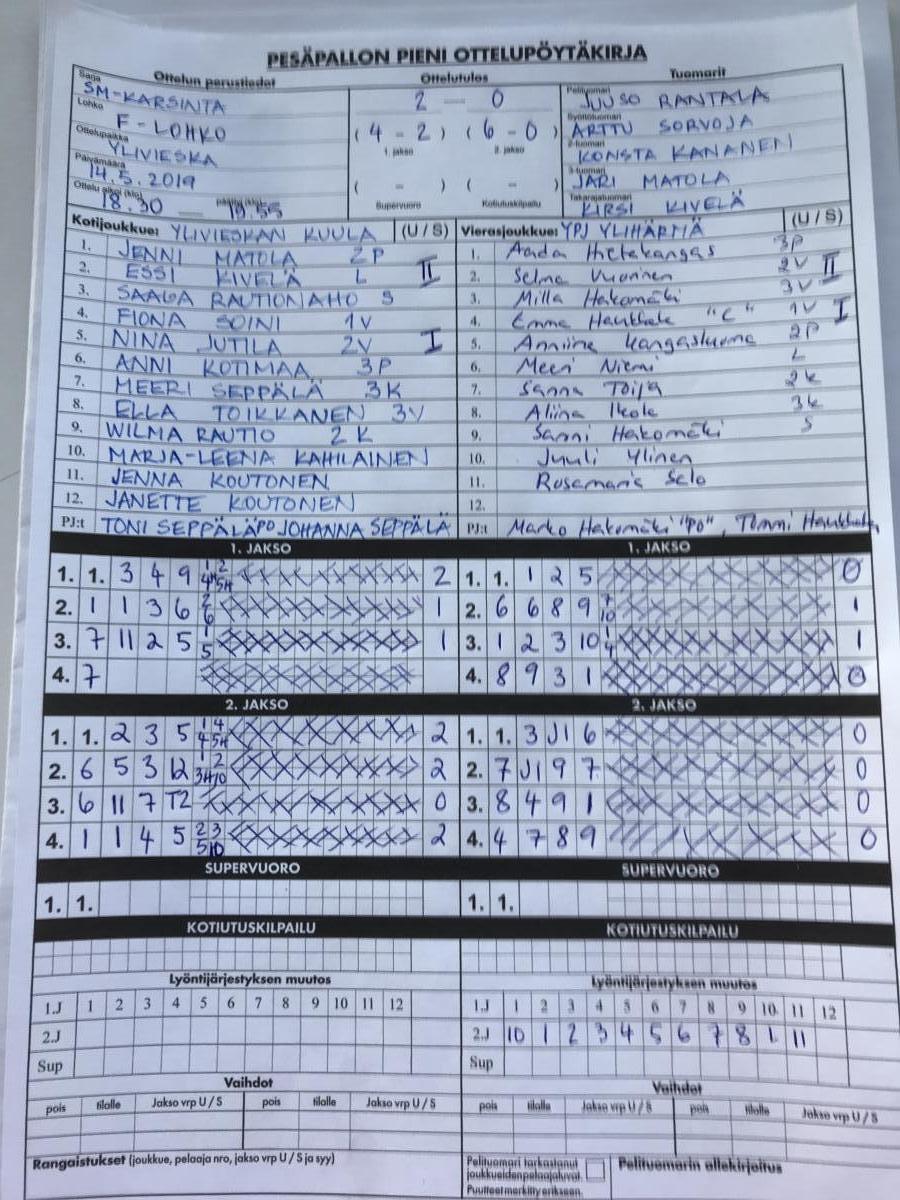 PESÄPALLON PIENI OTTELUPÖYTÄKIRJA
Ottelun perustiedot Ottelutulos Tuomarit
Sarja SM-KARSINTA
Lohko F-LOHKO
Ottelupaikka YLIVIESKA
Päivämäärä 14.5.2019
Ottelu alkoi (klo) 18.30 — päättyi (klo) 19.55
2 — 0
(4 - 2) (6 - 0)
1. jakso 2. jakso
( - ) ( - )
Supervuoro Kotiutuskilpailu
Pelituomari JUUSO RANTALA
Syöttötuomari ARTTU SORVOJA
2-tuomari KONSTA KANANEN
3-tuomari JARI MATOLA
Takarajatuomari KIRSI KIVELÄ
Kotijoukkue: YLIVIESKAN KUULA (U / S)
1. JENNI MATOLA 2P
2. ESSI KIVELÄ L II
3. SAAGA RAUTIONAHO S
4. FIONA SOINI 1V
5. NINA JUTILA 2V I
6. ANNI KOTIMAA 3P
7. MEERI SEPPÄLÄ 3K
8. ELLA TOIKKANEN 3V
9. WILMA RAUTIO 2K
10. MARJA-LEENA KAHILAINEN
11. JENNA KOUTONEN
12. JANETTE KOUTONEN
PJ:t TONI SEPPÄLÄ PO JOHANNA SEPPÄLÄ
Vierasjoukkue: YPJ YLIHÄRMÄ (U / S)
1. Aada Hietakangas 3P
2. Selma Vuorinen 2V II
3. Milla Hakomäki 3V
4. Emma Haukkala "C" 1V I
5. Anniina Kangasluoma 2P
6. Meeri Niemi L
7. Sanna Toija 2k
8. Aliina Ikola 3k
9. Sanni Hakomäki S
10. Juuli Ylinen
11. Rosamaria Salo
12.
PJ:t Marko Hakomäki "PO", Tommi Haukkala
1. JAKSO
1. 1. 3 4 9 1 2 4H 5H 2
2. 1 1 3 6 2 6 1
3. 7 11 2 5 1 5 1
4. 7
1. JAKSO
1. 1. 1 2 5 0
2. 6 6 8 9 7 10 1
3. 1 2 3 10 1 4 1
4. 8 9 3 1 0
2. JAKSO
1. 1. 2 3 5 1 4 4 5H 2
2. 6 5 3 12 1 2 3H 10 2
3. 6 11 7 T2 0
4. 1 1 4 5 2 3 5 10 2
2. JAKSO
1. 1. 3 J1 6 0
2. 7 J1 9 7 0
3. 8 4 9 1 0
4. 4 7 8 9 0
SUPERVUORO
1. 1.
SUPERVUORO
1. 1.
KOTIUTUSKILPAILU
KOTIUTUSKILPAILU
Lyöntijärjestyksen muutos
1.J 1 2 3 4 5 6 7 8 9 10 11 12
2.J
Sup
Lyöntijärjestyksen muutos
1.J 1 2 3 4 5 6 7 8 9 10 11 12
2.J 10 1 2 3 4 5 6 7 8 1 11
Sup
Vaihdot
pois tilalle Jakso vrp U / S pois tilalle Jakso vrp U / S
Vaihdot
pois tilalle Jakso vrp U / S pois tilalle Jakso vrp U / S
Rangaistukset (joukkue, pelaaja nro, jakso vrp U / S ja syy)
Pelituomari tarkastanut
joukkueidenpelaajaluvat.
Puutteet merkitty erikseen.
Pelituomarin allekirjoitus